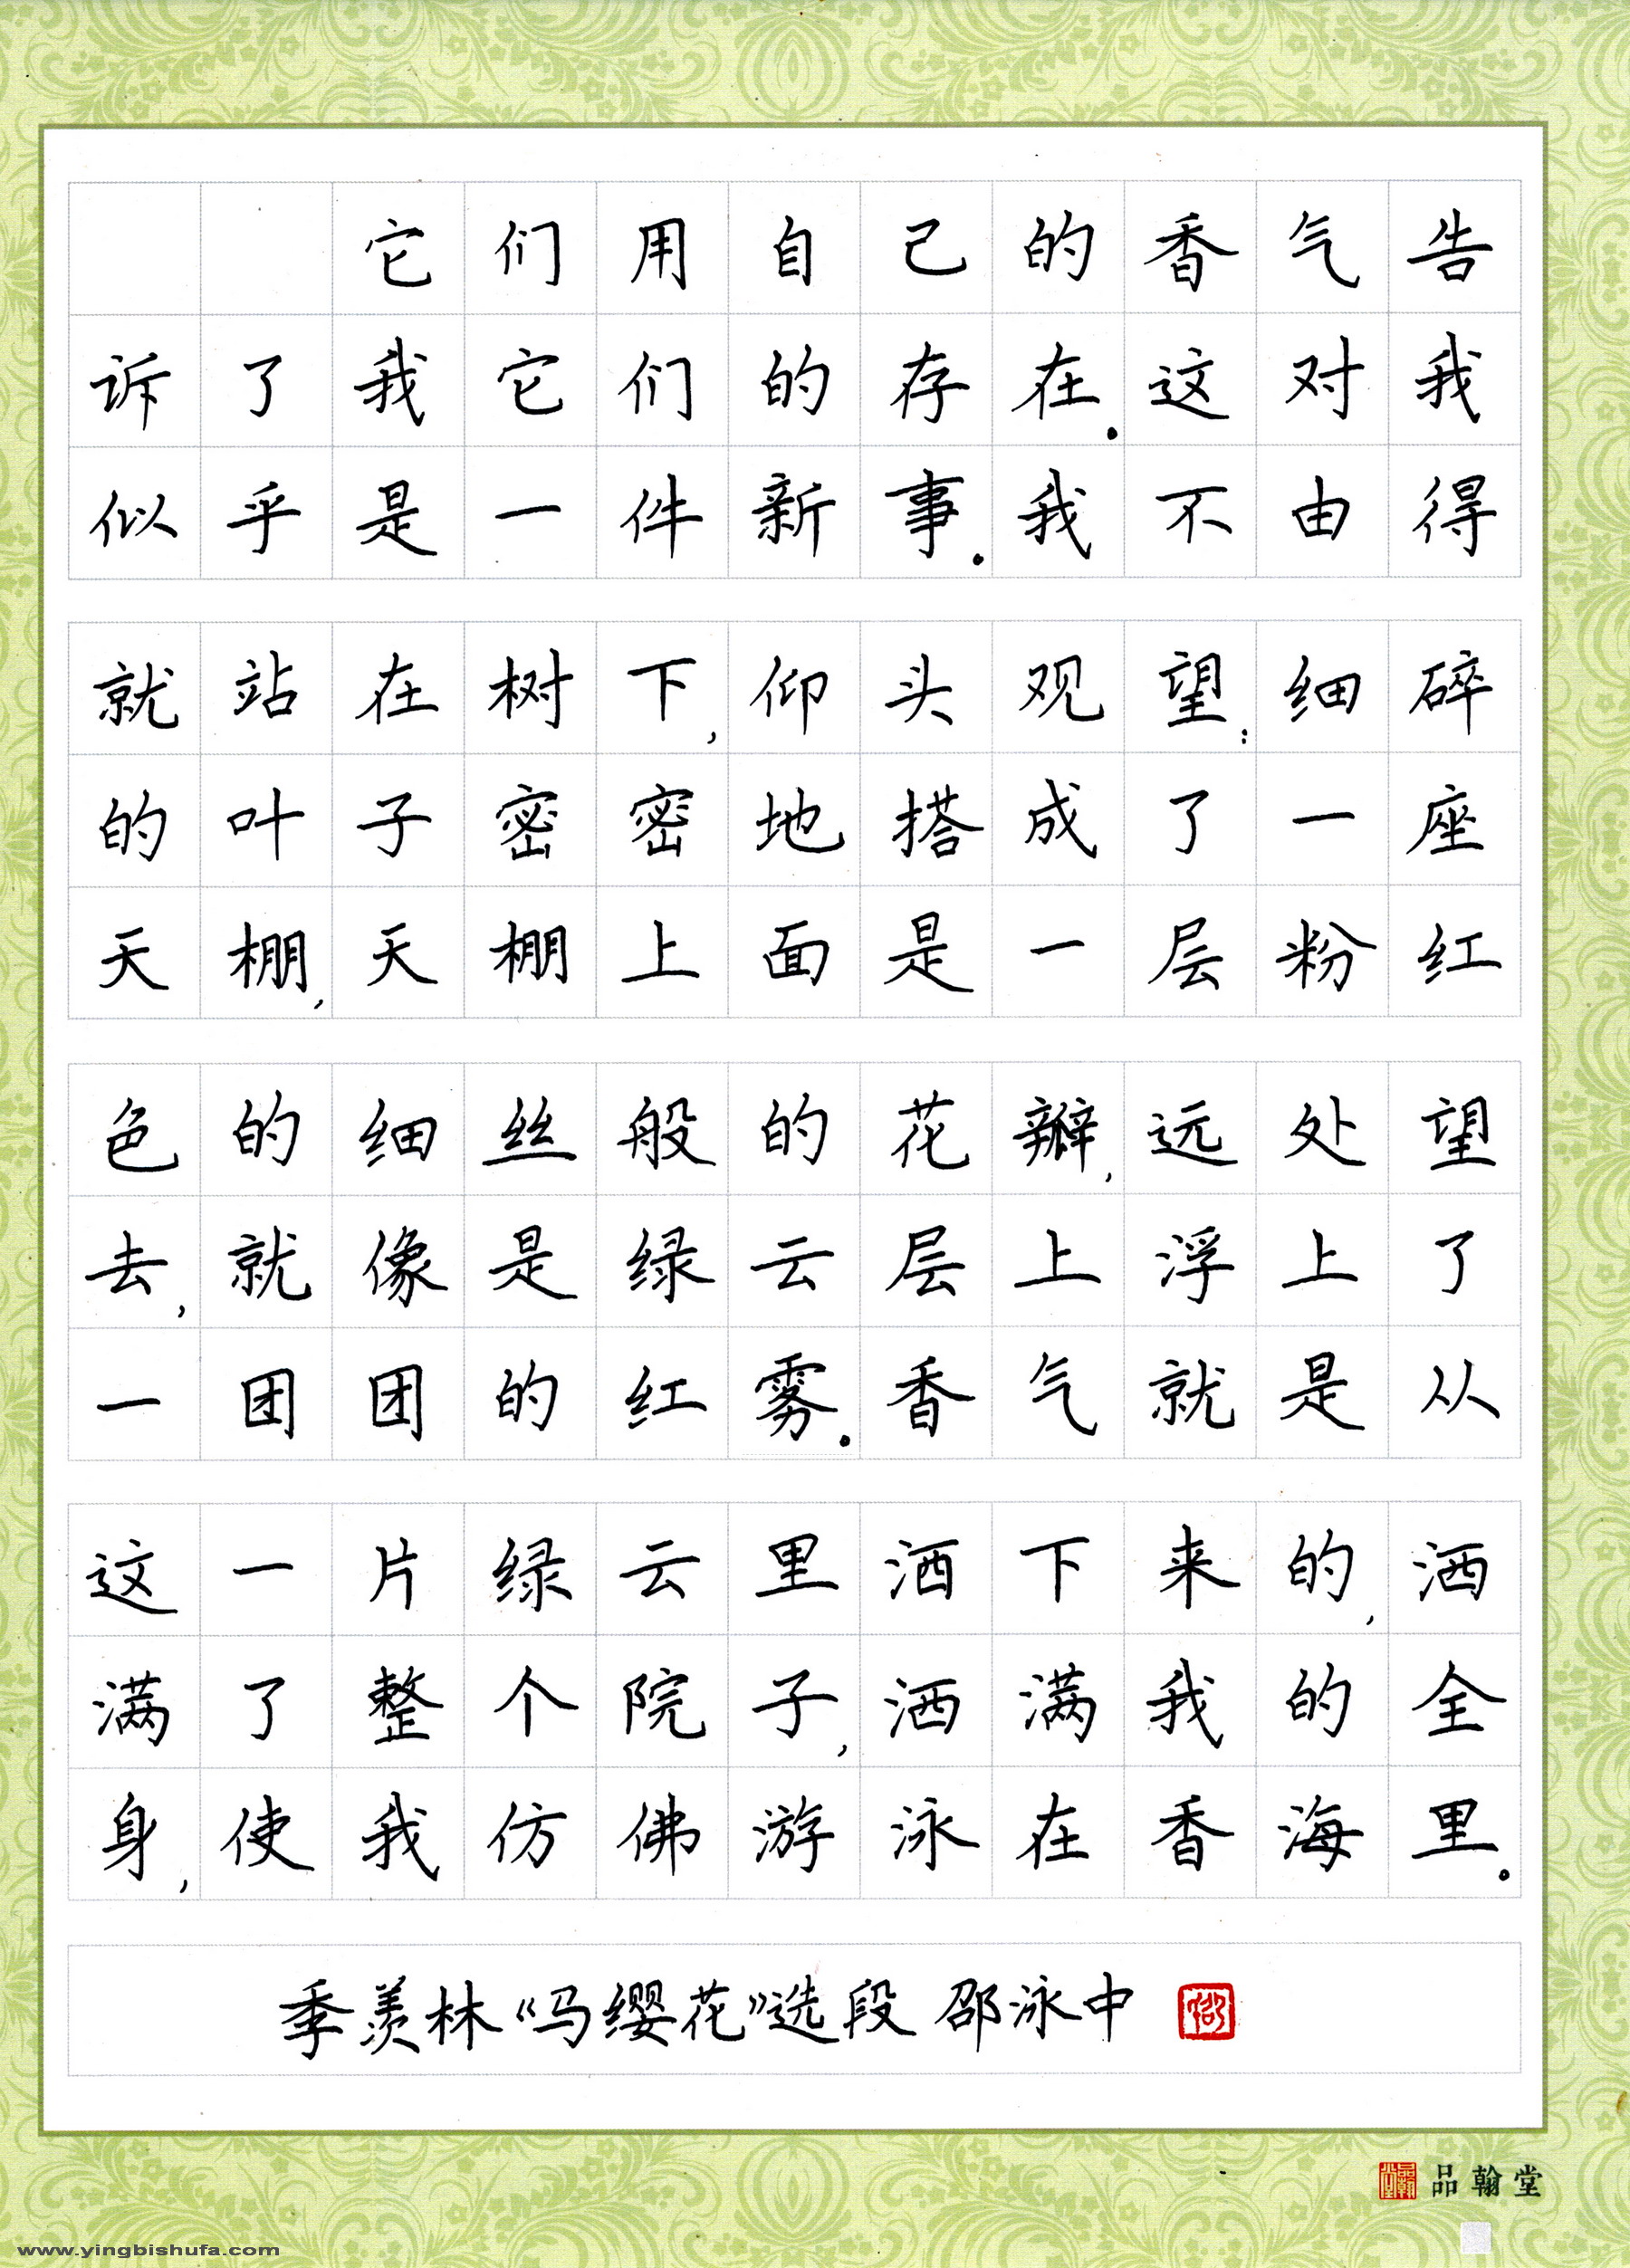 它们用自己的香气告
诉了我它们的存在。这对我
似乎是一件新事。我不由得
就站在树下,仰头观望:细碎
的叶子密密地搭成了一座
天棚,天棚上面是一层粉红
色的细丝般的花瓣,远处望
去,就像是绿云层上浮上了
一团团的红雾。香气就是从
这一片绿云里洒下来的,洒
满了整个院子,洒满我的全
身,使我仿佛游泳在香海里。
季羡林《马缨花》选段 邵泳中
品翰堂
www.yingbishufa.com